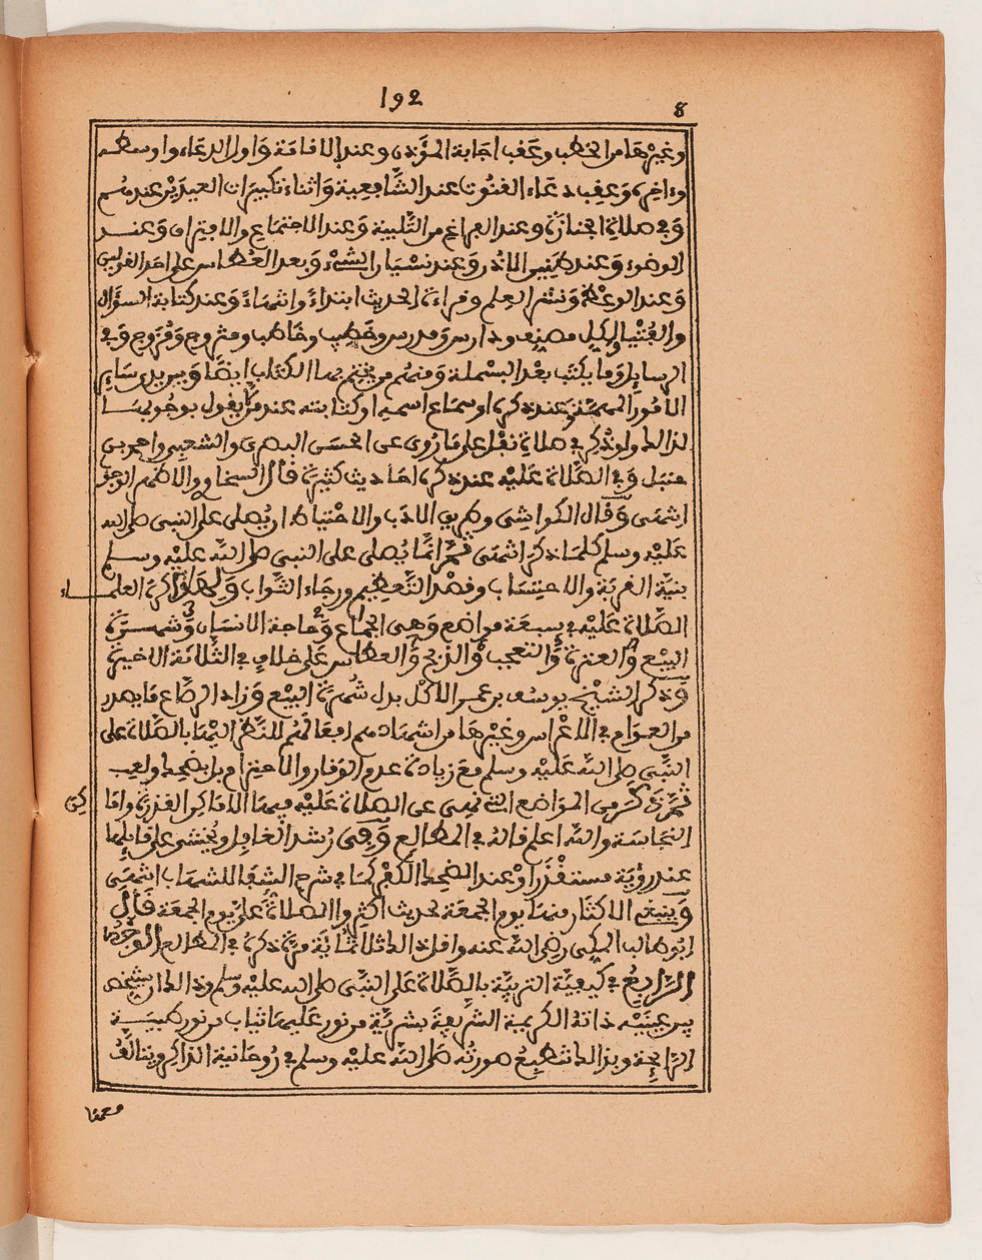 192
8
وغيرها من الخطب وعقب اجابة المؤذن وعند الاقامة وَاول الدعاء واوسطه
وءاخره وَعقِب دعَاء القنُوت عند الشَّافعِية وَاثناء تكبيرات العيدَيْن عندهُم
وَفي صلاة الجنازة وعند الفراغ من التَّلبية وَعند الاجتمَاع والافتراق وَعنـد
الوضوء وَعند طنِين الاذن وَعند نسْيَان الشيْء وَبعد العُطاس على احد القولين
وَعند الوعْظ وَنشر العِلم وقراءة الحديث ابتداءً وانتهَاءً وَعند كتابة السؤال
والفُتْيا ولكل مصنِف ودارس وَمدرس وخَطيب وخَاطب ومتزوج وَمُزوج وَفي
الرسايل وَما يكتب بعْد البسْملة وَمنهُم من يختم بهَا الكتاب ايضًا وَبين يدي سَاير
الامُور المهمّة وعند ذكره اوسمَاع اسمه اوكتابته عند من يقول بوجُوبهَـا
لذالك ولوذُكر في صلاة نفْلٍ على مَا رُوى عن الحسَن البصري والشعبِي واحمد بن
حنبل وَفي الصَّلاة عَليْه عند ذكره احَاديث كثيرة قال السخاوي والاظهر الوجوب
انتهى وَقال الكواشى وطريق الادَب والاحْتياط ان يُصلى على النبى صلى الله
عَليْه وسلم كلمَا ذكر انتهى ثمَّ انمَّا يُصلى على النبى صلى اللَّه عليْه وسلم
بنيَّة القربَة والاحتِسَاب وقصْد التَّعظيم ورجَاء الثَّواب وَلهَذا كره العلمـاء
الصَّلاة عَليْه في سبعَة مواضع وَهى الجمَاع وَحَاجة الانسَان وَشهـرة
البَيْع وَالعثرة وَالتعجب وَالذبح وَالعطاس عَلى خلاف في الثَّلاثة الاخيرة
وَذكر الشيْخ يوسُف بن عمـر الاكْل بدل شُهرة البَيْع وَزاد الرصَّاع مَا يصدر
من العـوَام في الاعْراس وغيْرهَا من اشهَارهم افعَالهُم للنَّظر اليْهَا بالصَّلاة على
النَّبِى صلى اللَّه عَليْه وسلم مَعَ زيادة عدم الوَقار والاحترام بل بضحك ولعِب
ثمَّ ذكر من المواضع التي نهى عن الصلاة عَليْه فيهَا الاماكِن القذرة وَامَا كن
النجَاسَة واللَّه اعلم قالهُ في المطالع وَفى رُشد الغافل ويُخشى على قايلهَا
عند رؤيَة مستقْذَر اوْ عند الضحِك الكفْر كمَا في شرح الشفَا للشهَاب انتهَى
وَينبغي الاكثار منهَا يوم الجمعَة لحديث اكثِروا الصلاة عَليَّ يوم الجمعَة قَال
ابُو طالب المكى رضي اللَّه عنه واقل ذالك ثلاثمَائة مرة ذكره في المطالع الوَجْه
الرَّابعُ في كيفيَّة التربيَّة بالصَّلاة عَلى النَّبِى صلى الله عليه وسلم وَذالك ان يشخص
بين عيْنَيْه ذاتهُ الكريمة الشريفَة بشريَّة من نور عَليهَا ثياب من نور طيبَـة
الرَّايحَة وبذالك تنْطبِعُ صورتُه صلى اللَّه عليْه وسلم في رُوحَانية الذاكر ويتالفُ